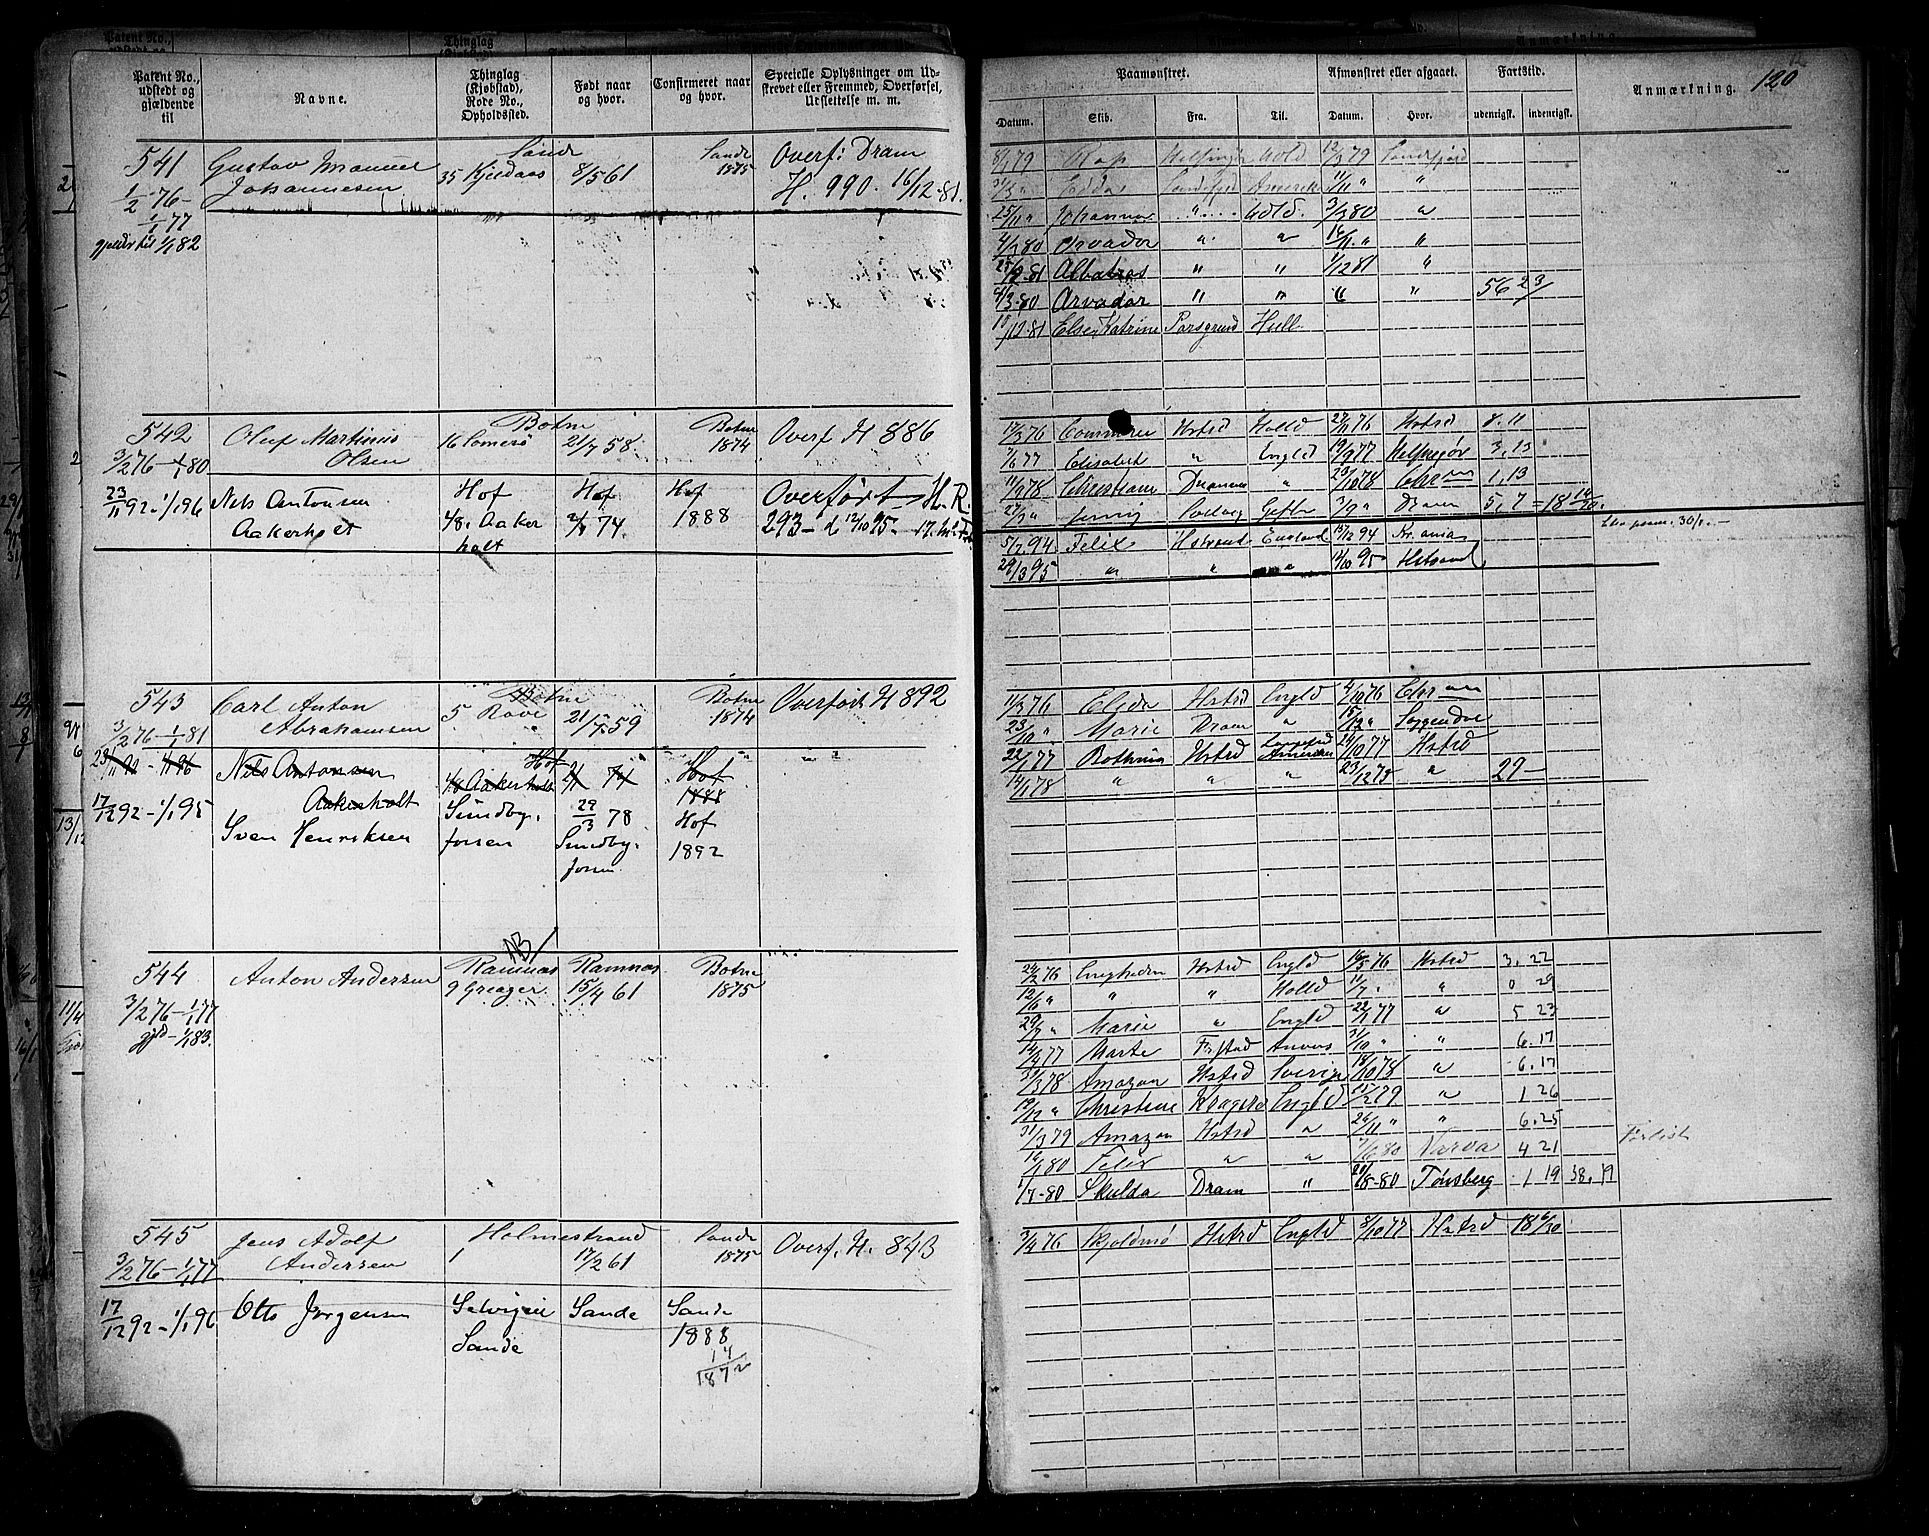 Patent No., udstedt og gjældende til
Navne.
Thinglag (Kjøbstad), Rode No., Opholdssted.
Født naar og hvor.
Confirmeret naar og hvor.
Specielle Oplysninger om Udskrevet eller Fremmed, Overførsel, Udslettelse m. m.
541 Gustav Imanuel Sande Sande Overf: Dram
1/2 76 - Johannesen 35 Kjeldaas 8/5 61 1875 H. 990. 16/12-81.
1/1 77
gjeldr til 1/1 82
542 Oluf Martinius Botne Botne Overf H 886
3/2 76 - 1/1 80 Olsen 16 21/7 58. 1874
23/11 92 - 1/1 96 Nils Antonsen Hof Hof Hof Overført H. R.
Aakerholt 48. Aaker 74. 1888 293 - d 12/10 95
holt
543 Carl Anton Botne Botne Overført H 892
3/2 76 - 1/1 81 Abrahamsen 5 Rove 21/7 59 1874
Nils Antonsen Hof 74 Hof
Aakerholt Aakerholt 1888
17/12 92 - 1/1 95 Sven Henriksen Sundby, 29/3 78 Hof
fossen Sundby, 1892
fossen
NB
544 Anton Andersen Ramnæs Ramnæs Botne
3/2 76 - 1/1 77 9 Greager 15/4 61 1875
gjld - 1/1 83.
545 Jens Adolf Holmestrand Sande Overf. H. 843
3/2 76 - 1/1 77 Andersen 1 17/2 61 1875
17/12 92 - 1/1 96 Otto Jørgensen Selvigen Sande Sande
Sande 1888
14/1872
Paamønstret.
Afmønstret eller afgaaet.
Fartstid.
Anmærkning. 120
Datum. Skib. Fra. Til. Datum. Hvor. udenrigsk. indenrigsk.
8/1 79 Rap Helsingør Udld 12/3 79 Sandefjord
31/3 " Edda Sandefjd Amerika 11/11 " "
25/11 " Johanna " Udld. 3/3 80 "
Arvador " " "
Albatros " " 1/12 81 "
4/3-80 Arvador " " " " 56 23/
10/12-81 Else Katrine Porsgrund Hull
17/3 76 Hstrd Holld 27/11 76 Hstrd 8. 11
7/6 77 Elisabet " Engld 19/9 77 Helsingør 3, 13
11/9 78 Christiane Drammen " 23/10 78 Chr 1, 13
Gefle Dram 5, 7 = 18
5/2 94 Felix Hstrand England 15/12 94 Kr.ania
29/3 95 " " " 12/10 95 Hstrand
11/3 76 Elida Hstrd Engld 4/10 76 Chr
23/10 " Marie Dram " 15/12 " Soggendal
22/1 77 Bothnia Hstrd 24/10 77 Hstrd
14/1 78 " " " 23/12 78 " 27 -
24/2 76 Enigheden Hstrd Engld 16/5 76 Hstrd 3, 22
12/6 " " " Holld 11/7 " " 0 29
29/7 " Marie " Engld 22/1 77 " 5 23
14/4 77 Marte Anvers 31/10 " " 6. 17
31/3 78 Amazon Hstrd Sverige 18/10 78 " 6. 17
19/12 " Christine Kragerø Engld 15/2 79 " 1 26
31/3 79 Amazon Hstrd " 26/11 " " 6. 25
16/1 80 Felix " " 7/6 80 Narva 4 21 Forlist
1/7-80 Skulda Dram " 20/8-80 Tønsberg 1 19 38. 19
3/4 76 Skjoldmø Hstrd Engld 8/10 77 Hstrd 18 6/30